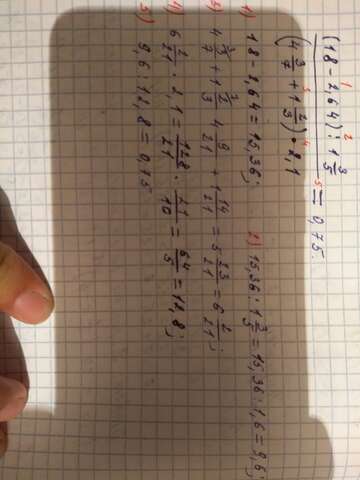 (18 - 2,64) : 1 3/5
(4 3/7 + 1 2/3) • 2,1 = 0,75.
1) 18 - 2,64 = 15,36; 2) 15,36 : 1 3/5 = 15,36 : 1,6 = 9,6;
3) 4 3/7 + 1 2/3 = 4 9/21 + 1 14/21 = 5 23/21 = 6 2/21;
4) 6 2/21 • 2,1 = 128/21 • 21/10 = 64/5 = 12,8;
5) 9,6 : 12,8 = 0,75.